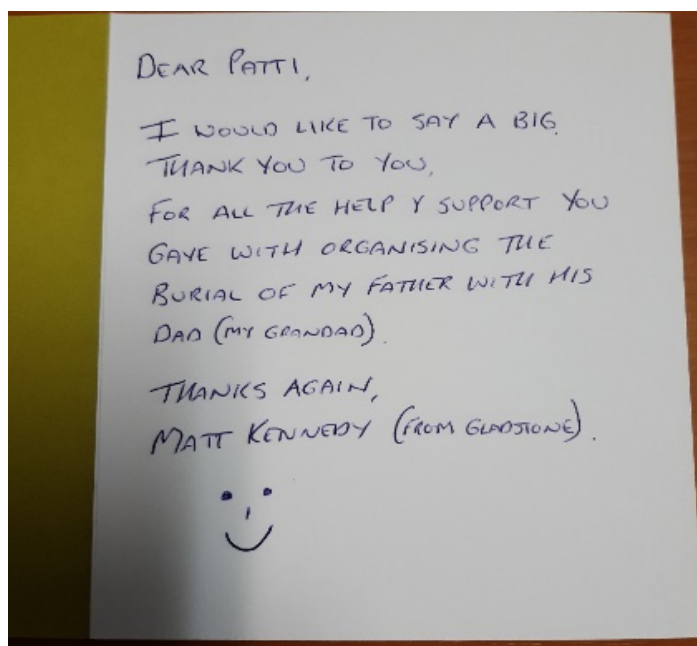 DEAR PATTI,
I WOULD LIKE TO SAY A BIG
THANK YOU TO YOU,
FOR ALL THE HELP Y SUPPORT YOU
GAVE WITH ORGANISING THE
BURIAL OF MY FATHER WITH HIS
DAD (MY GRANDAD).
THANKS AGAIN,
MATT KENNEDY (FROM GLADSTONE).